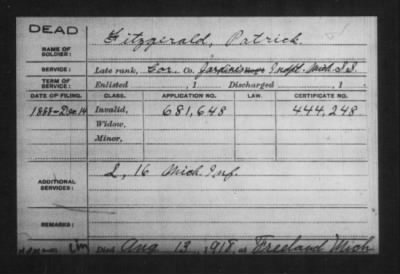 DEAD
NAME OF SOLDIER:
Fitzgerald, Patrick
SERVICE:
Late rank, Cor. Co. Jardines Indpt. Mich. S.S.
TERM OF SERVICE:
Enlisted , 1 Discharged , 1
DATE OF FILING. CLASS. APPLICATION NO. LAW. CERTIFICATE NO.
1888-Dec 14 Invalid, 681,648 444,248
Widow,
Minor,
ADDITIONAL SERVICES:
I, 16 Mich. Inf.
REMARKS:
Died Aug 13, 1918, at Freeland Mich